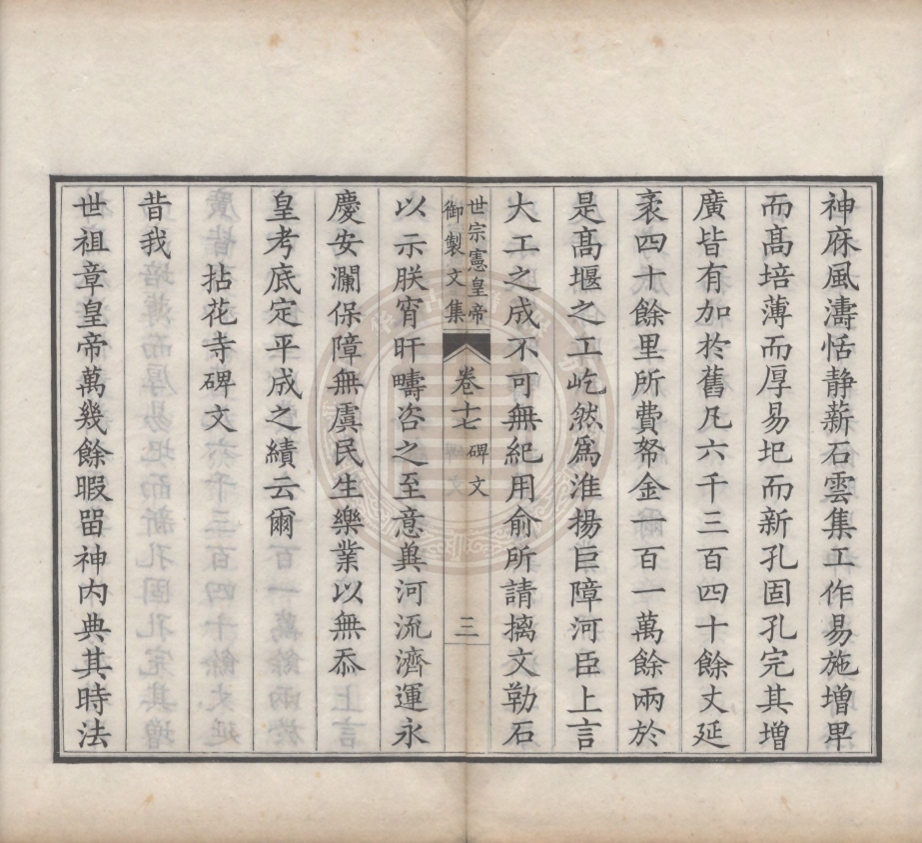 神庥風濤恬静薪石雲集工作易施增卑
而髙培薄而厚易圯而新孔固孔完其增
廣皆有加於舊凡六千三百四十餘丈延
袤四十餘里所費帑金一百一萬餘兩於
是髙堰之工屹然爲淮揚巨障河臣上言
大工之成不可無紀用俞所請摛文勒石
世宗憲皇帝
御製文集
卷十七
碑文
三
以示朕宵旰疇咨之至意兾河流濟運永
慶安瀾保障無虞民生樂業以無忝
皇考底定平成之績云爾
拈花寺碑文
昔我
世祖章皇帝萬幾餘暇畱神內典其時法